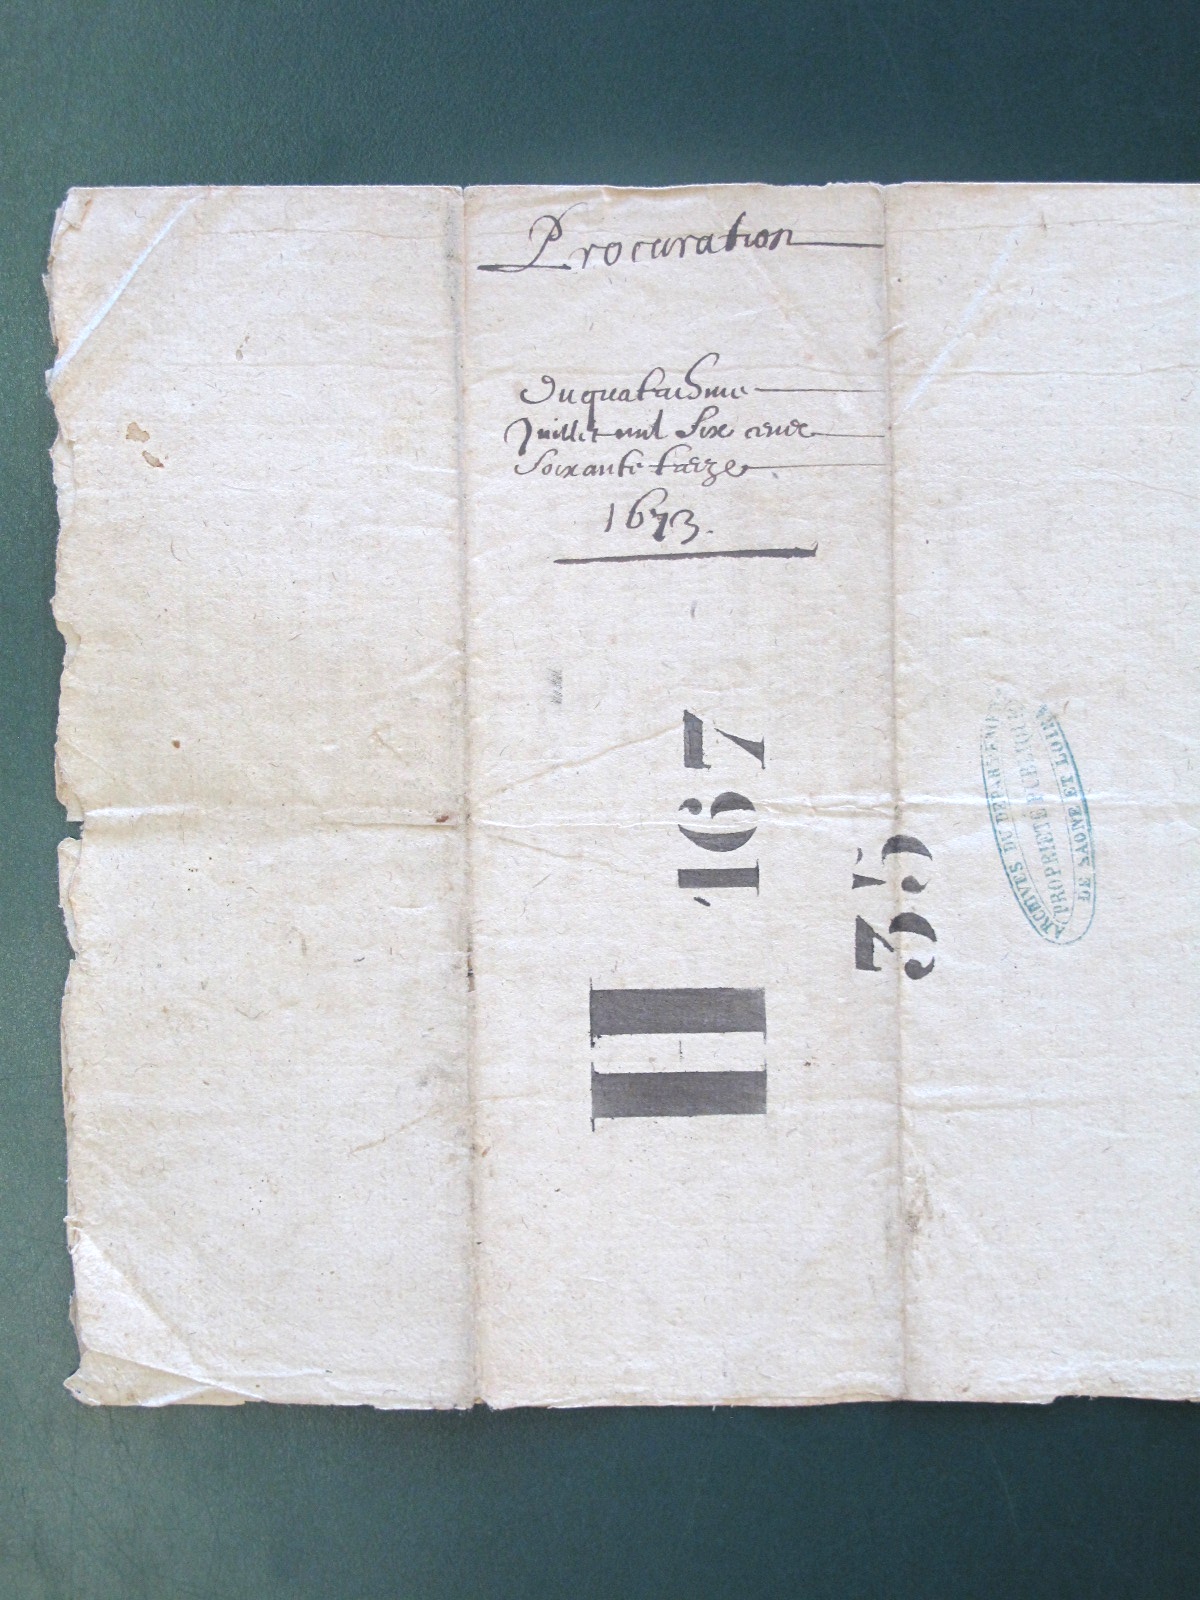 Procuration
Du quatriesme
Juillet mil six cens
soixante treize
1673.
H 167
35
ARCHIVES DU DEPARTEMENT
PROPRIETE PUBLIQUE
DE SAONE ET LOIRE